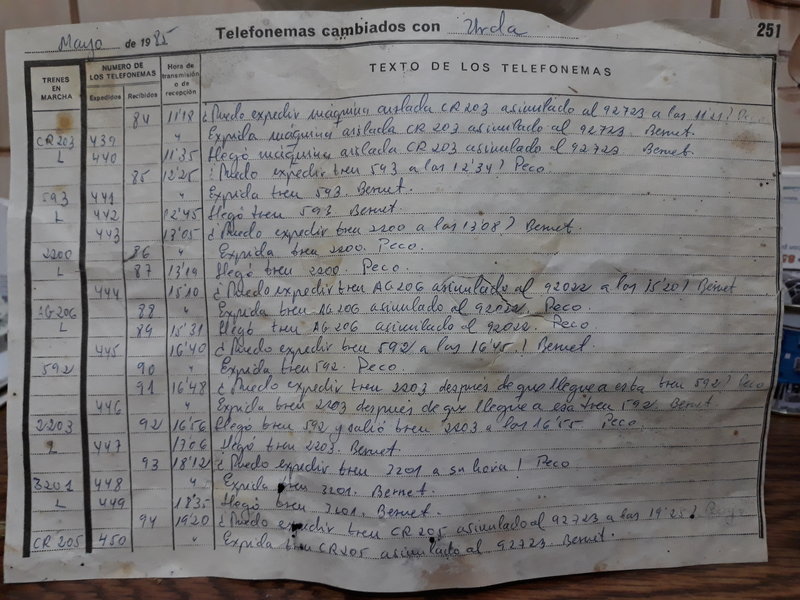 Mayo de 1985 Telefonemas cambiados con Urda 251
TRENES EN MARCHA NUMERO DE LOS TELEFONEMAS Expedidos Recibidos Hora de transmisión o de recepción TEXTO DE LOS TELEFONEMAS
84 11'18 ¿Puedo expedir máquina aislada CR 203 asimulado al 92723 a las 11'21?
CR203 439 " Expida máquina aislada CR 203 asimulado al 92723. Bernet.
L 440 11'35 Llegó máquina aislada CR 203 asimulado al 92723. Bernet.
85 12'25 ¿Puedo expedir tren 593 a las 12'34? Peco.
593 441 " Expida tren 593. Bernet.
L 442 12'45 Llegó tren 593. Bernet.
443 13'05 ¿Puedo expedir tren 2200 a las 13'08? Bernet.
2200 86 " Expida tren 2200. Peco.
L 87 13'19 Llegó tren 2200. Peco.
444 15'10 ¿Puedo expedir tren AG206 asimulado al 92022 a las 15'20? Bernet
AG206 88 " Expida tren AG206 asimulado al 92022. Peco.
L 89 15'31 Llegó tren AG206 asimulado al 92022. Peco.
445 16'40 ¿Puedo expedir tren 592 a las 16'45? Bernet.
592 90 " Expida tren 592. Peco.
91 16'48 ¿Puedo expedir tren 2203 después de que llegue a esta tren 592? Peco
446 " Expida tren 2203 después de que llegue a esa tren 592. Bernet
2203 92 16'56 Llegó tren 592 y salió tren 2203 a las 16'55. Peco.
L 447 17'06 Llegó tren 2203. Bernet.
93 18'12 ¿Puedo expedir tren 3201 a su hora? Peco
3201 448 " Expida tren 3201. Bernet.
L 449 18'35 Llegó tren 3201. Bernet.
94 19'20 ¿Puedo expedir tren CR 205 asimulado al 92723 a las 19'25?
CR 205 450 " Expida tren CR 205 asimulado al 92723. Bernet.